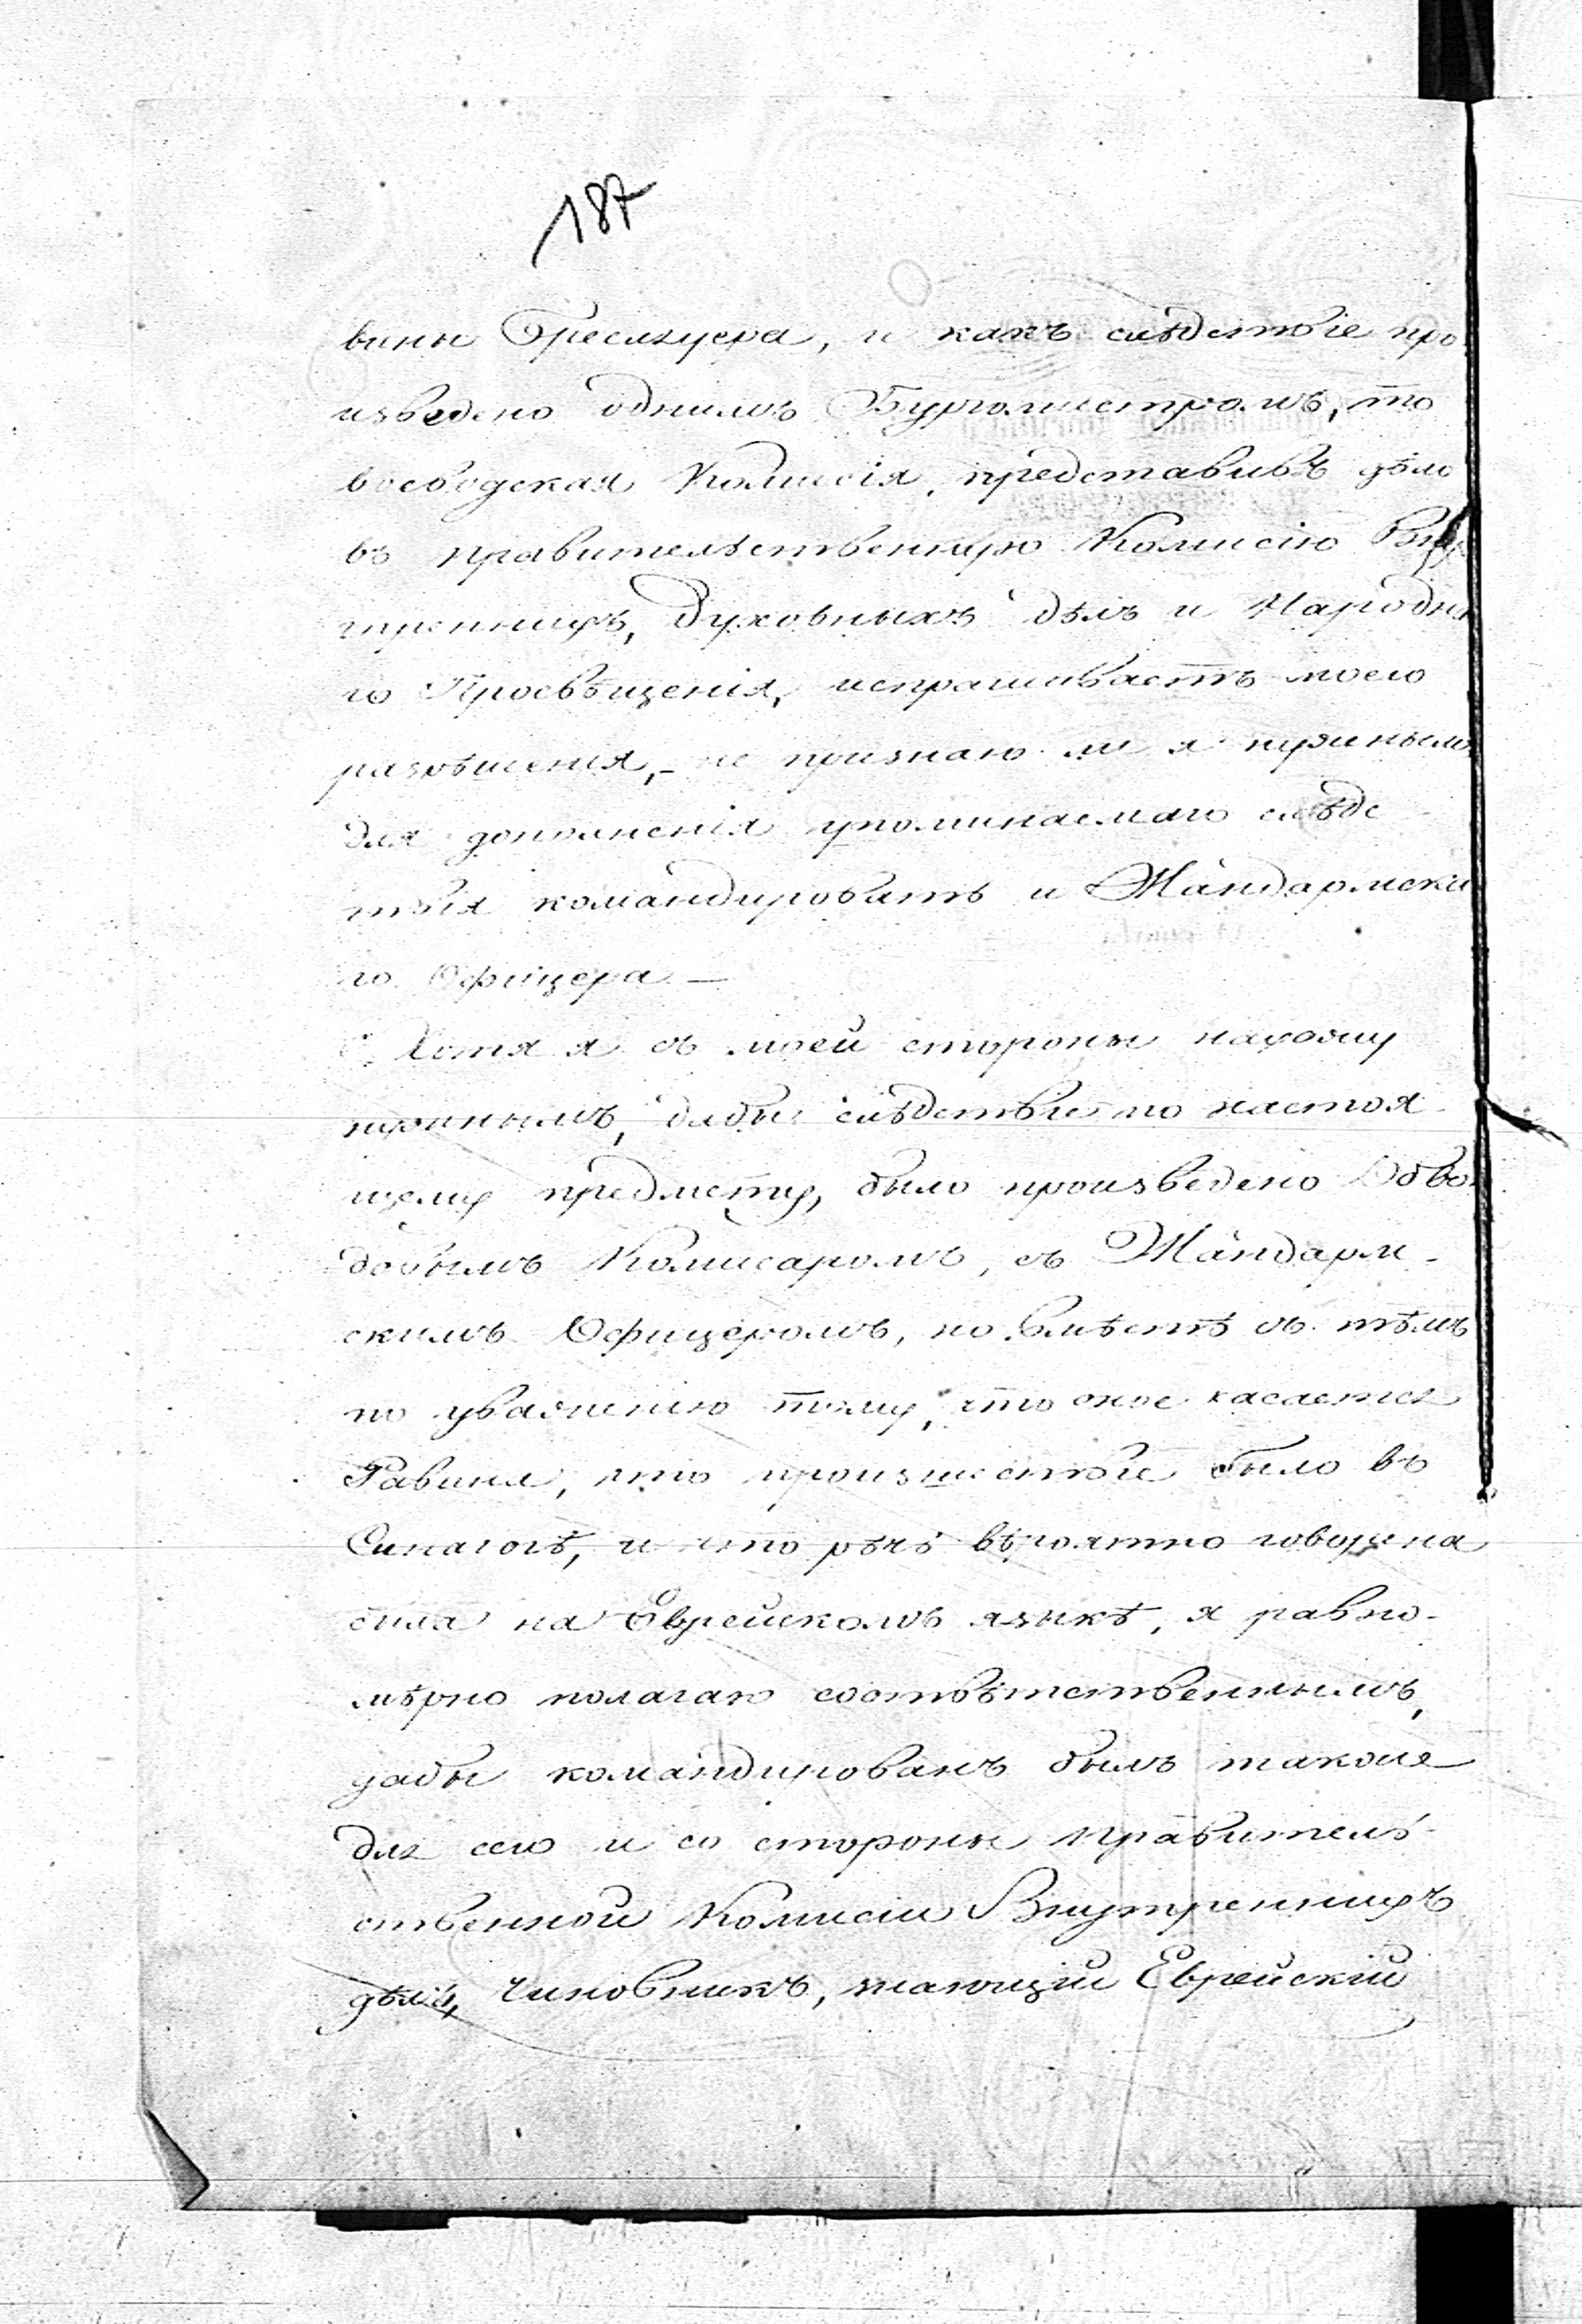 187
вины Греслауера, и какъ слѣдствіе про
изведено однимъ Бургомистромъ, то
воеводская Комисія, представивъ дѣло
въ правительственную Комисію Вну
треннихъ, духовныхъ дѣлъ и Народна
го Просвѣщенія, испрашиваетъ моего
разрѣшенія, - не признаю ли я нужнымъ
для дополненія упоминаемаго слѣдс
твія командировать и Жандармска
го Офицера —
Хотя я съ моей стороны нахожу
нужнымъ, дабы слѣдствіе по настоя
щему предмету, было произведено Обво
довымъ Комисаромъ, съ Жандарм-
скимъ Офицеромъ, но вмѣстѣ съ тѣмъ
по уваженію тому, что оное касается
Равина, что произшествіе было въ
Синагогѣ, и что рѣчь вѣроятно говорена
была на Еврейскомъ языкѣ, я равно-
мѣрно полагаю соотвѣтственнымъ,
дабы командированъ былъ также
для сего и со стороны правитель-
ственной Комисіи Внутреннихъ
дѣлъ, Чиновникъ, знающій Еврейскій